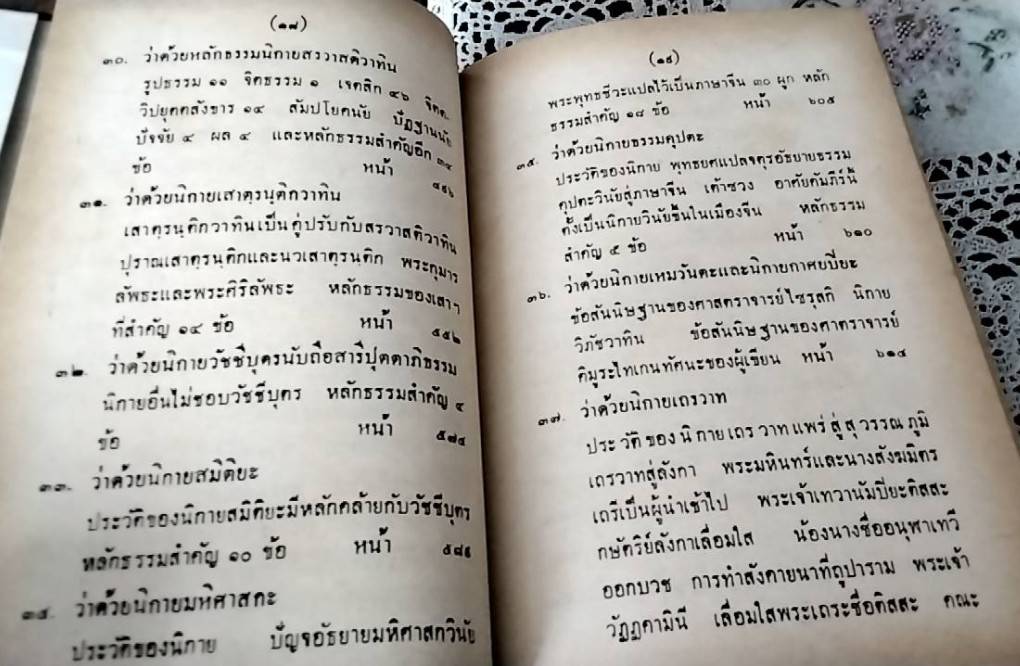 (๑๘)
๓๐. ว่าด้วยหลักธรรมนิกายสรวาสติวาทิน
รูปธรรม ๑๑ จิตธรรม ๑ เจตสิก ๔๖ จิตต
วิปยุคตสังขาร ๑๔ สัมปโยคนัย ปัฏฐานนัย
ปัจจัย ๔ ผล ๔ และหลักธรรมสำคัญอีก ๓๔
ข้อ หน้า
๓๑. ว่าด้วยนิกายเสาตฺรนฺติกวาทิน
เสาตฺรนฺติกวาทินเป็นคู่ปรับกับสรวาสติวาทิน
ปุราณเสาตฺรนฺติกและนวเสาตฺรนฺติก พระกุมาร
ลัพธะและพระศิริลัพธะ หลักธรรมของเสาฯ
ที่สำคัญ ๑๔ ข้อ หน้า ๕๕๒
๓๒. ว่าด้วยนิกายวัชชีบุตรนับถือสารีปุตตาภิธรรม
นิกายอื่นไม่ชอบวัชชีบุตร หลักธรรมสำคัญ ๔
ข้อ หน้า ๕๘๔
๓๓. ว่าด้วยนิกายสมิติยะ
ประวัติของนิกายสมิติยะมีหลักคล้ายกับวัชชีบุตร
หลักธรรมสำคัญ ๑๐ ข้อ หน้า ๕๘๙
๓๔. ว่าด้วยนิกายมหิศาสกะ
ประวัติของนิกาย ปัญจอัธยายมหิศาสกวินัย
(๑๙)
พระพุทธชีวะแปลไว้เป็นภาษาจีน ๓๐ ผูก หลัก
ธรรมสำคัญ ๑๘ ข้อ หน้า ๖๐๕
๓๕. ว่าด้วยนิกายธรรมคุปตะ
ประวัติของนิกาย พุทธยศแปลจตุรอัธยายธรรม
คุปตะวินัยสู่ภาษาจีน เต้าซวง อาศัยคัมภีร์นี้
ตั้งเป็นนิกายวินัยขึ้นในเมืองจีน หลักธรรม
สำคัญ ๕ ข้อ หน้า ๖๑๐
๓๖. ว่าด้วยนิกายเหมวันตะและนิกายกาศยปียะ
ข้อสันนิษฐานของศาสตราจารย์ไซรุสกิ นิกาย
วิภัชวาทิน ข้อสันนิษฐานของศาตราจารย์
คิมูระไทเกนทัศนะของผู้เขียน หน้า ๖๑๔
๓๗. ว่าด้วยนิกายเถรวาท
ประวัติของนิกายเถรวาทแพร่สู่สุวรรณภูมิ
เถรวาทสู่ลังกา พระมหินทร์และนางสังฆมิตร
เถรีเป็นผู้นำเข้าไป พระเจ้าเทวานัมปิยะติสสะ
กษัตริย์ลังกาเลื่อมใส น้องนางชื่ออนุฬาเทวี
ออกบวช การทำสังคายนาที่ถูปาราม พระเจ้า
วัฏฏคามินี เลื่อมใสพระเถระชื่อติสสะ คณะ